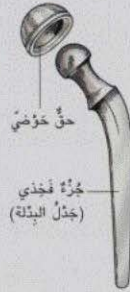 حقٌّ حَوْضيّ
جُزْءٌ فَخِذي
(جَدْلُ البِدْلة)